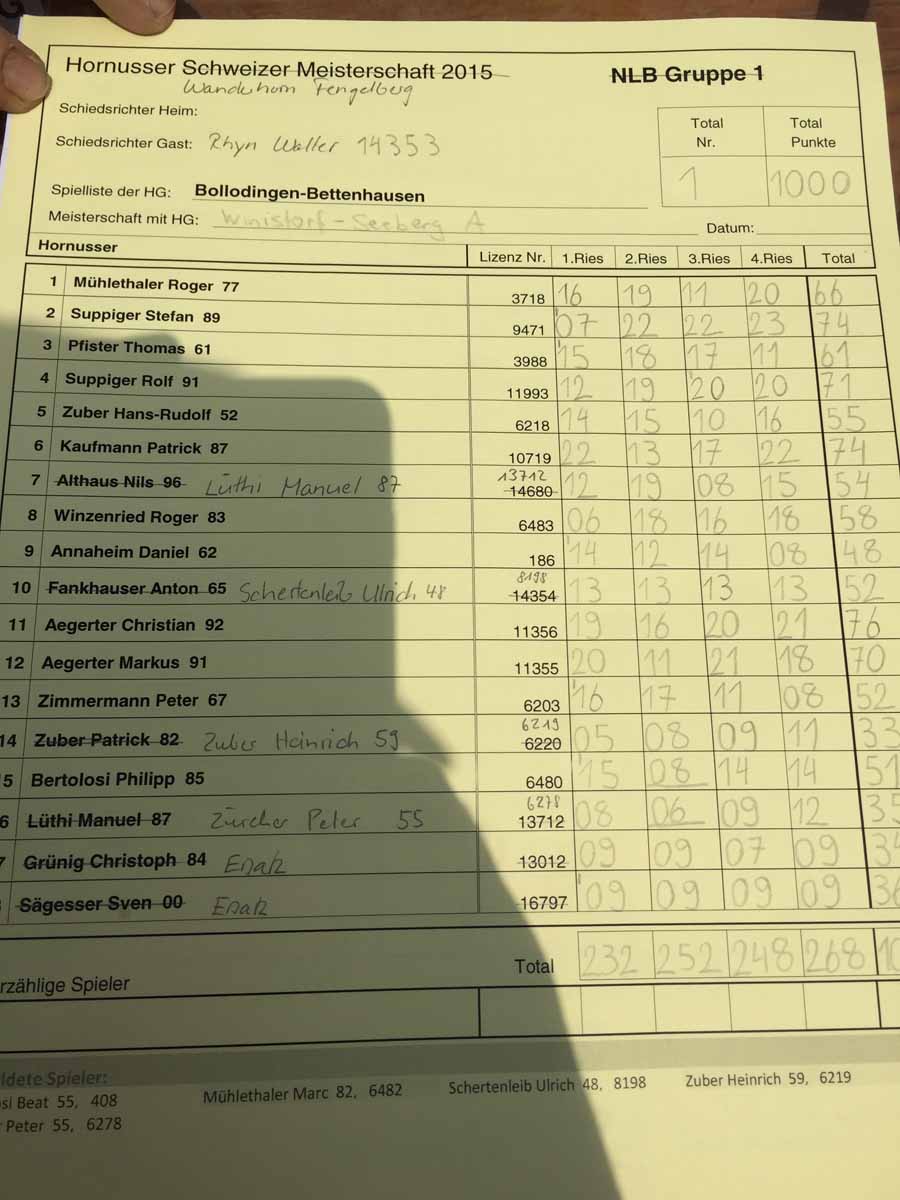 Hornusser Schweizer Meisterschaft 2015 NLB Gruppe 1
Wanderhorn Fengelberg
Schiedsrichter Heim:
Schiedsrichter Gast: Rhyn Walter 14353
Total Nr. Total Punkte
1 1000
Spielliste der HG: Bollodingen-Bettenhausen
Meisterschaft mit HG: Winistorf-Seeberg A Datum:
Hornusser Lizenz Nr. 1.Ries 2.Ries 3.Ries 4.Ries Total
1 Mühlethaler Roger 77 3718 16 19 11 20 66
2 Suppiger Stefan 89 9471 07 22 22 23 74
3 Pfister Thomas 61 3988 15 18 17 11 61
4 Suppiger Rolf 91 11993 12 19 20 20 71
5 Zuber Hans-Rudolf 52 6218 14 15 10 16 55
6 Kaufmann Patrick 87 10719 22 13 17 22 74
7 Althaus Nils 96 Lüthi Manuel 87 13712 14680 12 19 08 15 54
8 Winzenried Roger 83 6483 06 18 16 18 58
9 Annaheim Daniel 62 186 14 12 14 08 48
10 Fankhauser Anton 65 Schertenleib Ulrich 48 8198 14354 13 13 13 13 52
11 Aegerter Christian 92 11356 19 16 20 21 76
12 Aegerter Markus 91 11355 20 11 21 18 70
13 Zimmermann Peter 67 6203 16 17 11 08 52
14 Zuber Patrick 82 Zuber Heinrich 59 6219 6220 05 08 09 11 33
5 Bertolosi Philipp 85 6480 15 08 14 14 51
6 Lüthi Manuel 87 Zürcher Peter 55 6278 13712 08 06 09 12 35
7 Grünig Christoph 84 Ersatz 13012 09 09 07 09 34
Sägesser Sven 00 Ersatz 16797 09 09 09 09 36
Total 232 252 248 268 10
rzählige Spieler
ldete Spieler:
si Beat 55, 408 Mühlethaler Marc 82, 6482 Schertenleib Ulrich 48, 8198 Zuber Heinrich 59, 6219
r Peter 55, 6278